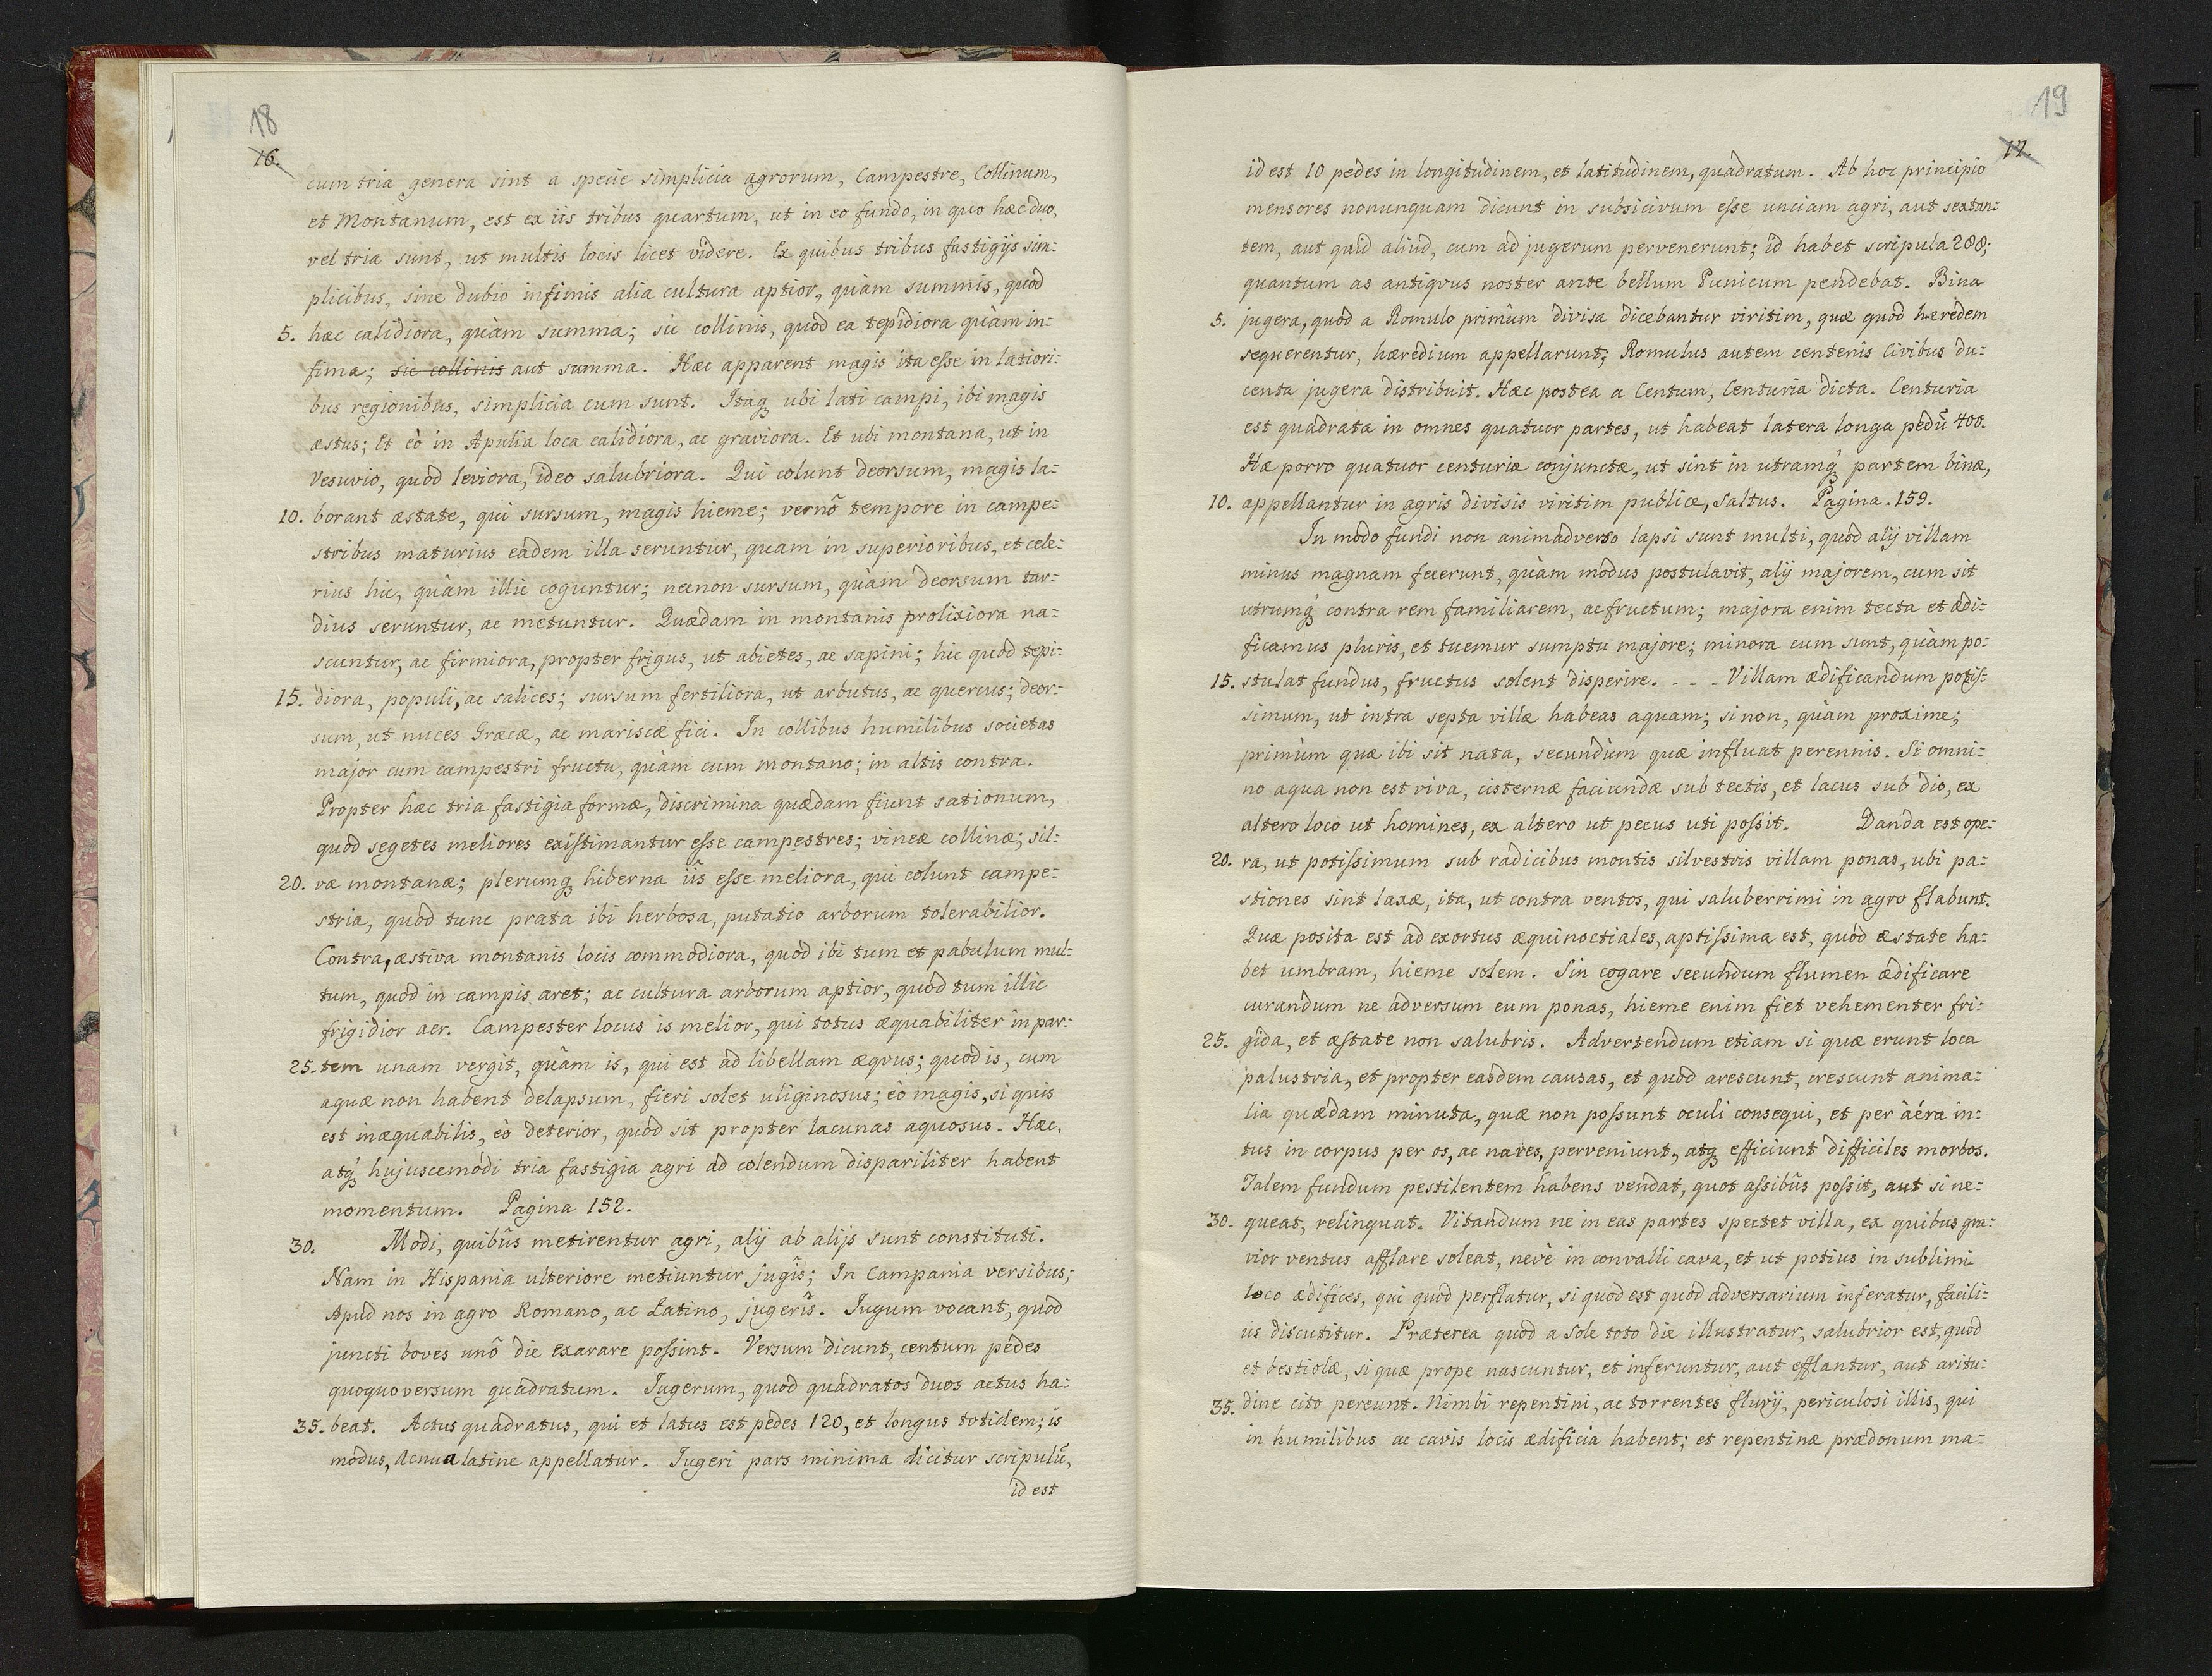 18
16.
cum tria genera sint a specie simplicia agrorum, Campestre, Collinum,
et Montanum, est ex iis tribus quartum, ut in eo fundo, in quo hæc duo,
vel tria sunt, ut multis locis licet videre. Ex quibus tribus fastigijs sim-
plicibus, sine dubio infimis alia cultura aptior, quàm summis, quod
5. hæc calidiora, quàm summa; sic collinis, quod ea tepidiora quàm in-
fima; sic collinis aut summa. Hæc apparent magis ita esse in latiori-
bus regionibus, simplicia cum sunt. Itaq; ubi lati campi, ibi magis
æstus; Et eò in Apulia loca calidiora, ac graviora. Et ubi montana, ut in
Vesuvio, quòd leviora, ideo salubriora. Qui colunt deorsum, magis la-
10. borant æstate, qui sursum, magis hieme; vernô tempore in campe-
stribus maturius eâdem illa seruntur, quam in superioribus, et cele-
rius hic, quàm illic coguntur; necnon sursum, quàm deorsum tar-
dius seruntur, ac metuntur. Quædam in montanis prolixiora na-
scuntur, ac firmiora, propter frigus, ut abietes, ac sapini; hic quòd tepi-
15. diora, populi, ac salices; sursum fertiliora, ut arbutus, ac quercus; deor-
sum, ut nuces Græcæ, ac mariscæ fici. In collibus humilibus societas
major cum campestri fructu, quàm cum montano; in altis contra.
Propter hæc tria fastigia formæ, discrimina quædam fiunt sationum,
quòd segetes meliores existimantur esse campestres; vineæ collinæ; sil-
20. væ montanæ; plerumq; hiberna iis esse meliora, qui colunt campe-
stria, quòd tunc prata ibi herbosa, putatio arborum tolerabilior.
Contra, æstiva montanis locis commodiora, quòd ibi tum et pabulum mul-
tum, quòd in campis aret; ac cultura arborum aptior, quòd tum illic
frigidior aer. Campester locus is melior, qui totus æquabiliter in par-
25. tem unam vergit, quàm is, qui est ad libellam æqvus; quod is, cum
aquæ non habent delapsum, fieri solet uliginosus; eò magis, si quis
est inæquabilis, eò deterior, quòd sit propter lacunas aquosus. Hæc,
atq; hujuscemodi tria fastigia agri ad colendum dispariliter habent
momentum. Pagina 152.
30. Modi, quibûs metirentur agri, alij ab alijs sunt constituti.
Nam in Hispania ulteriore metiuntur jugîs; In Campania versibus;
Apud nos in agro Romano, ac Latino, jugerîs. Iugum vocant, quod
juncti boves unô die exarare possint. Versum dicunt, centum pedes
quoquoversum quadratum. Iugerum, quod quadratos duos actus ha-
35. beat. Actus quadratus, qui et latus est pedes 120, et longus totidem; is
modus, Acnua latine appellatur. Iugeri pars minima dicitur scripulũ,
id est
19
17.
id est 10 pedes in longitudinem, et latitudinem, quadratum. Ab hoc principio
mensores nonunquam dicunt in subsicivum esse unciam agri, aut sextan-
tem, aut quid aliud, cum ad jugerum pervenerunt; id habet scripula 288;
quantum as antiqvus noster ante bellum Punicum pendebat. Bina
5. jugera, quod a Romulo primùm divisa dicebantur viritim, quæ quod hæredem
sequerentur, hæredium appellarunt; Romulus autem centenis Civibus du-
centa jugera distribuit. Hæc postea a Centum, Centuria dicta. Centuria
est quadrata in omnes quatuor partes, ut habeat latera longa pedũ 400.
Hæ porro quatuor centuriæ conjunctæ, ut sint in utramq; partem binæ,
10. appellantur in agris divisis viritim publicæ, Saltus. Pagina. 159.
In modo fundi non animadverso lapsi sunt multi, quòd alij villam
minus magnam fecerunt, quàm modus postulavit, alij majorem, cum sit
utrumq; contra rem familiarem, ac fructum; majora enim tecta et ædi-
ficamus pluris, et tuemur sumptu majore; minora cum sunt, quàm po-
15. stulat fundus, fructus solent disperire. - - - Villam ædificandum potis-
simum, ut intra septa villæ habeas aquam; si non, quàm proxime;
primùm quæ ibi sit nata, secundùm quæ influat perennis. Si omni-
no aqua non est viva, cisternæ faciundæ sub tectis, et lacus sub dio, ex
altero loco ut homines, ex altero ut pecus uti possit. Danda est ope-
20. ra, ut potissimum sub radicibus montis silvestris villam ponas, ubi pa-
stiones sint laxæ, ita, ut contra ventos, qui saluberrimi in agro flabunt.
Quæ posita est ad exortus æquinoctiales, aptissima est, quòd æstate ha-
bet umbram, hieme solem. Sin cogare secundum flumen ædificare
curandum ne adversum eum ponas, hieme enim fiet vehementer fri-
25. gida, et æstate non salubris. Advertendum etiam si quæ erunt loca
palustria, et propter easdem causas, et quòd arescunt, crescunt anima-
lia quædam minuta, quæ non possunt oculi consequi, et per àéra in-
tus in corpus per os, ac nares, perveniunt, atq; efficiunt difficiles morbos.
Talem fundum pestilentem habens vendat, quot assibûs possit, aut si ne-
30. queat, relinquat. Vitandum ne in eas partes spectet villa, ex quibus gra-
vior ventus afflare soleat, nevè in convalli cava, et ut potius in sublimi
loco ædifices, qui quòd perflatur, si quod est quòd adversarium inferatur, facili-
ùs discutitur. Præterea quòd a Sole toto die illustratur, salubrior est, quòd
et bestiolæ, si quæ prope nascuntur, et inferuntur, aut efflantur, aut aritu-
35. dine cito pereunt. Nimbi repentini, ac torrentes fluvij, periculosi illis, qui
in humilibus ac cavis locis ædificia habent; et repentinæ prædonum ma-